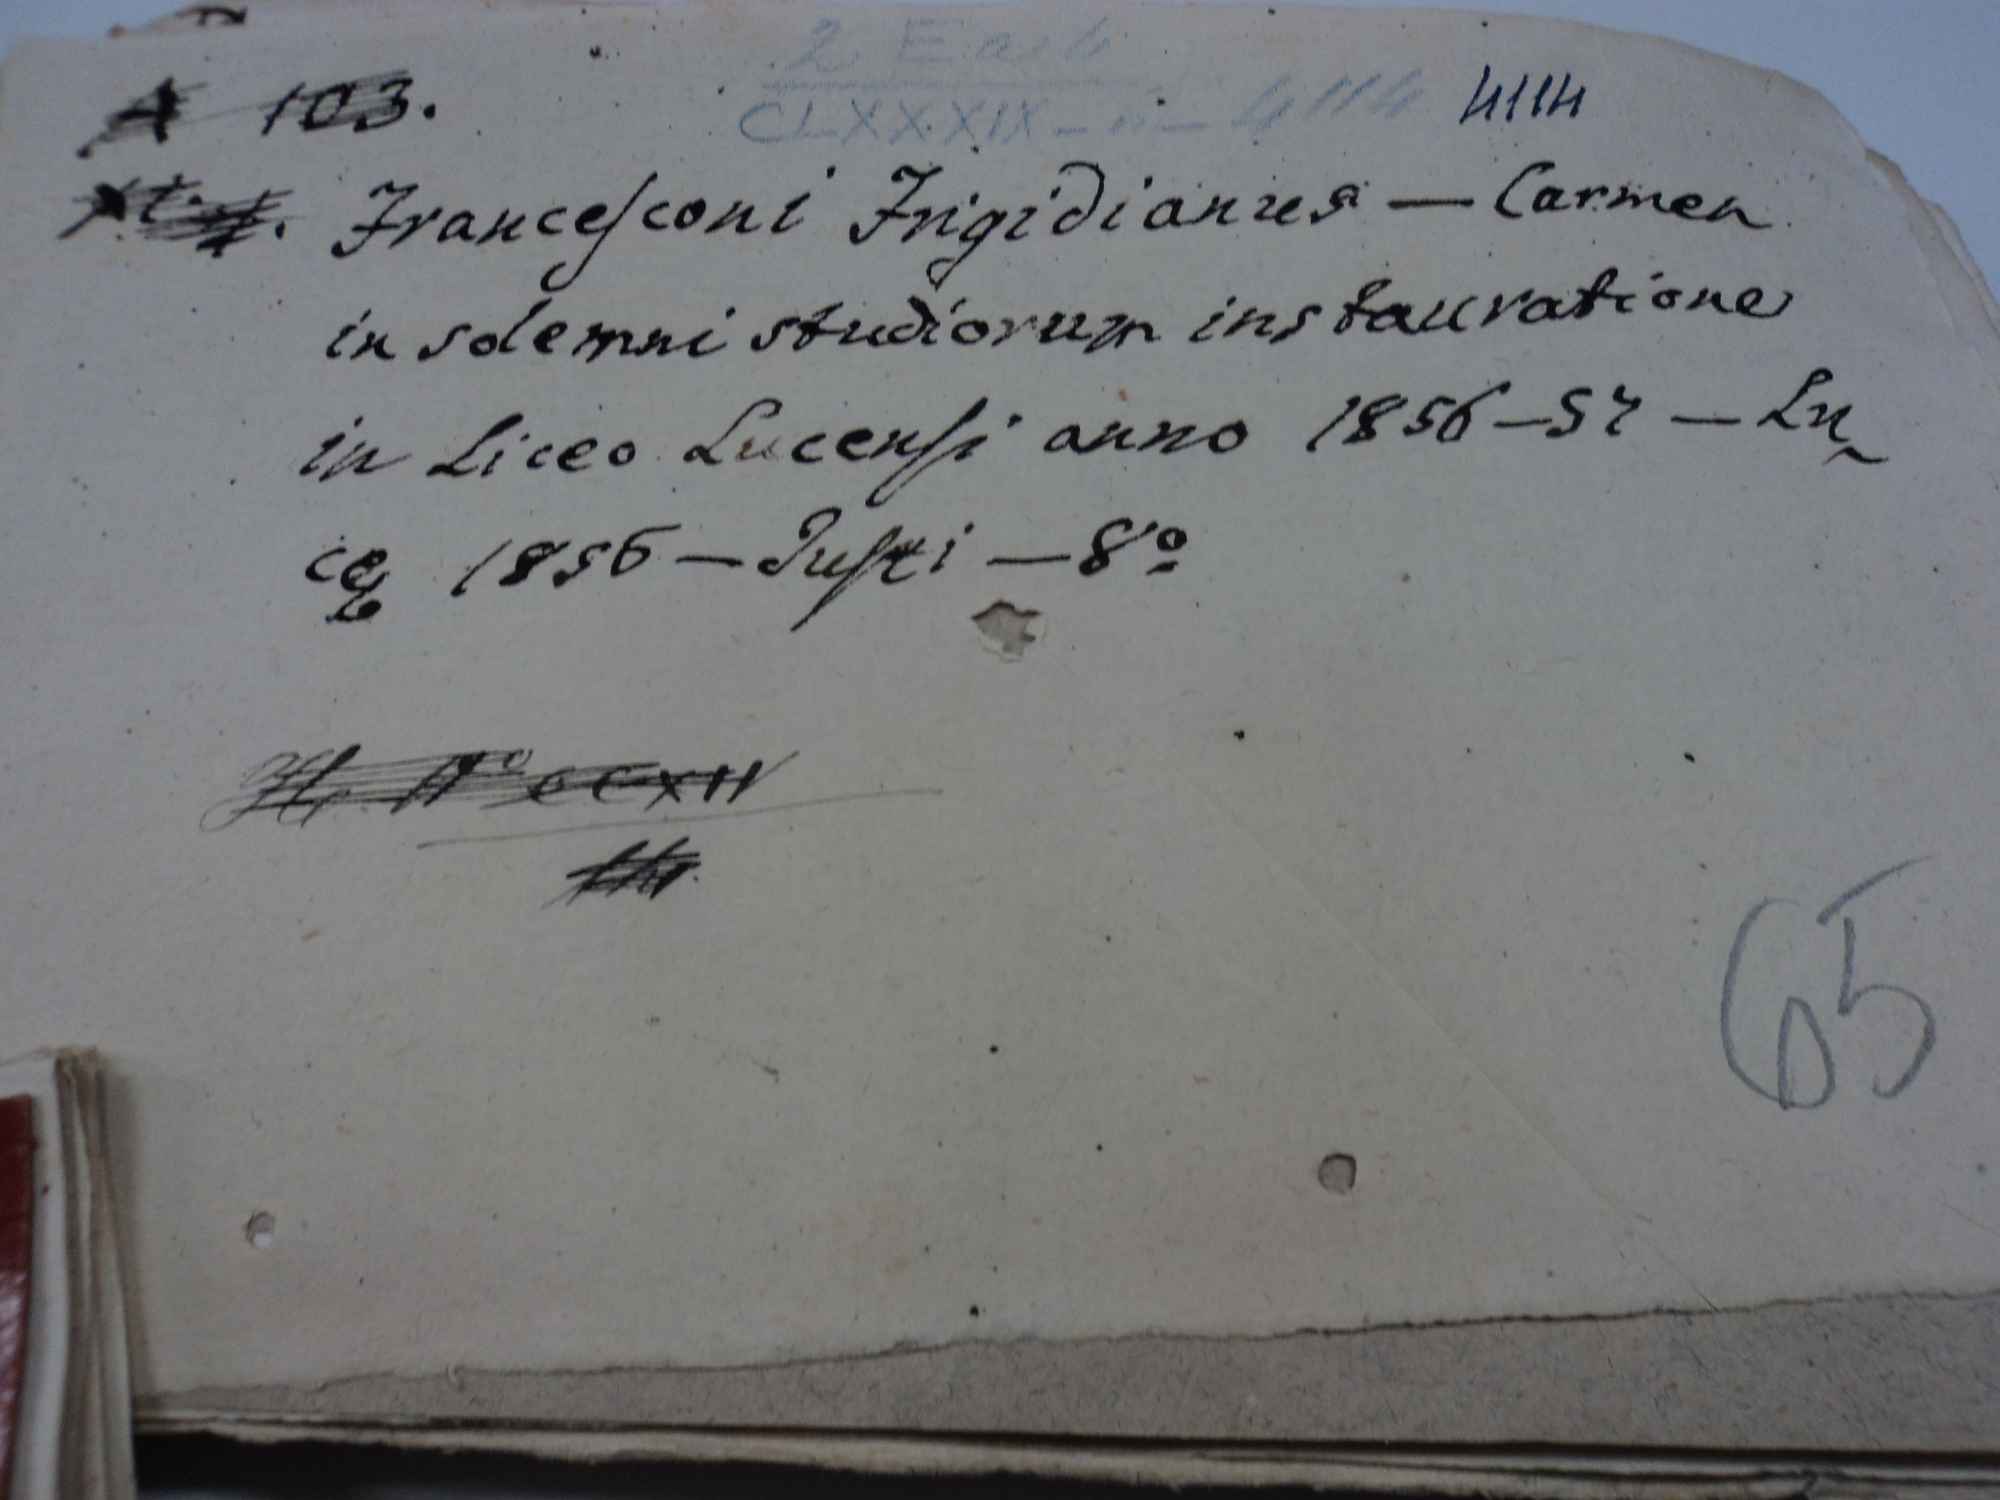 A 103.
CLXXXIX - 4114 4114
Francesconi Frigidianus — Carmen
in solemni studiorum instauratione
in Liceo Lucensi anno 1856-57 — Lu
cę 1856 — Justi — 8º
CCXII
65